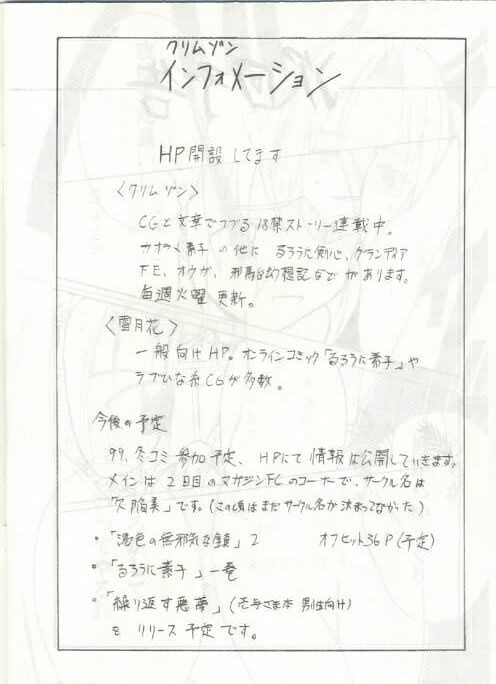 クリムゾン
インフォメーション
HP開設してます
〈クリムゾン〉
CGと文章でつづる18禁ストーリー連載中。
カオラや素子の他に るろうに剣心、グランディア
FE、オウガ、邪馬台幻想記などがあります。
毎週火曜更新。
〈雪月花〉
一般向けHP。オンラインコミック「るろうに素子」や
ラブひな系CGが多数。
今後の予定
99、冬コミ参加予定、HPにて情報は公開していきます。
メインは2日目のマガジンFCのコーナーで、サークル名は
「欠陥美」です。(この頃はまだサークル名が決まってなかった)
・「湯色の無邪気な鎖」2 オフセット36P(予定)
・「るろうに素子」一巻
・「繰り返す悪夢」(壱与さま本 男性向け)
を リリース予定です。